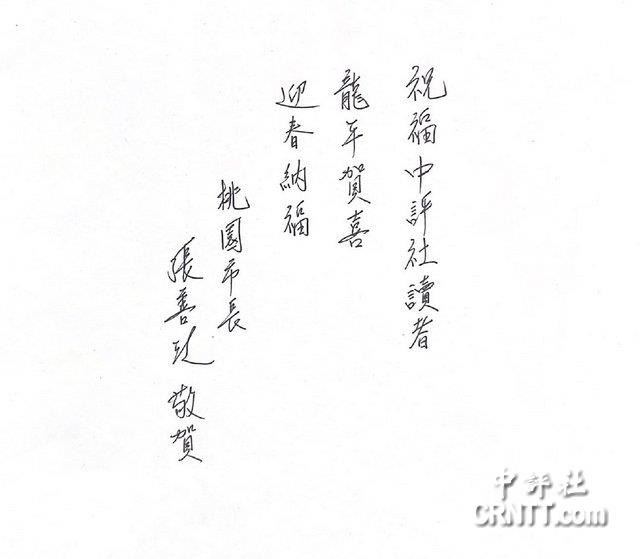 祝福中評社讀者
龍年賀喜
迎春納福
桃園市長
張善政 敬賀
中評社
CRNTT.com